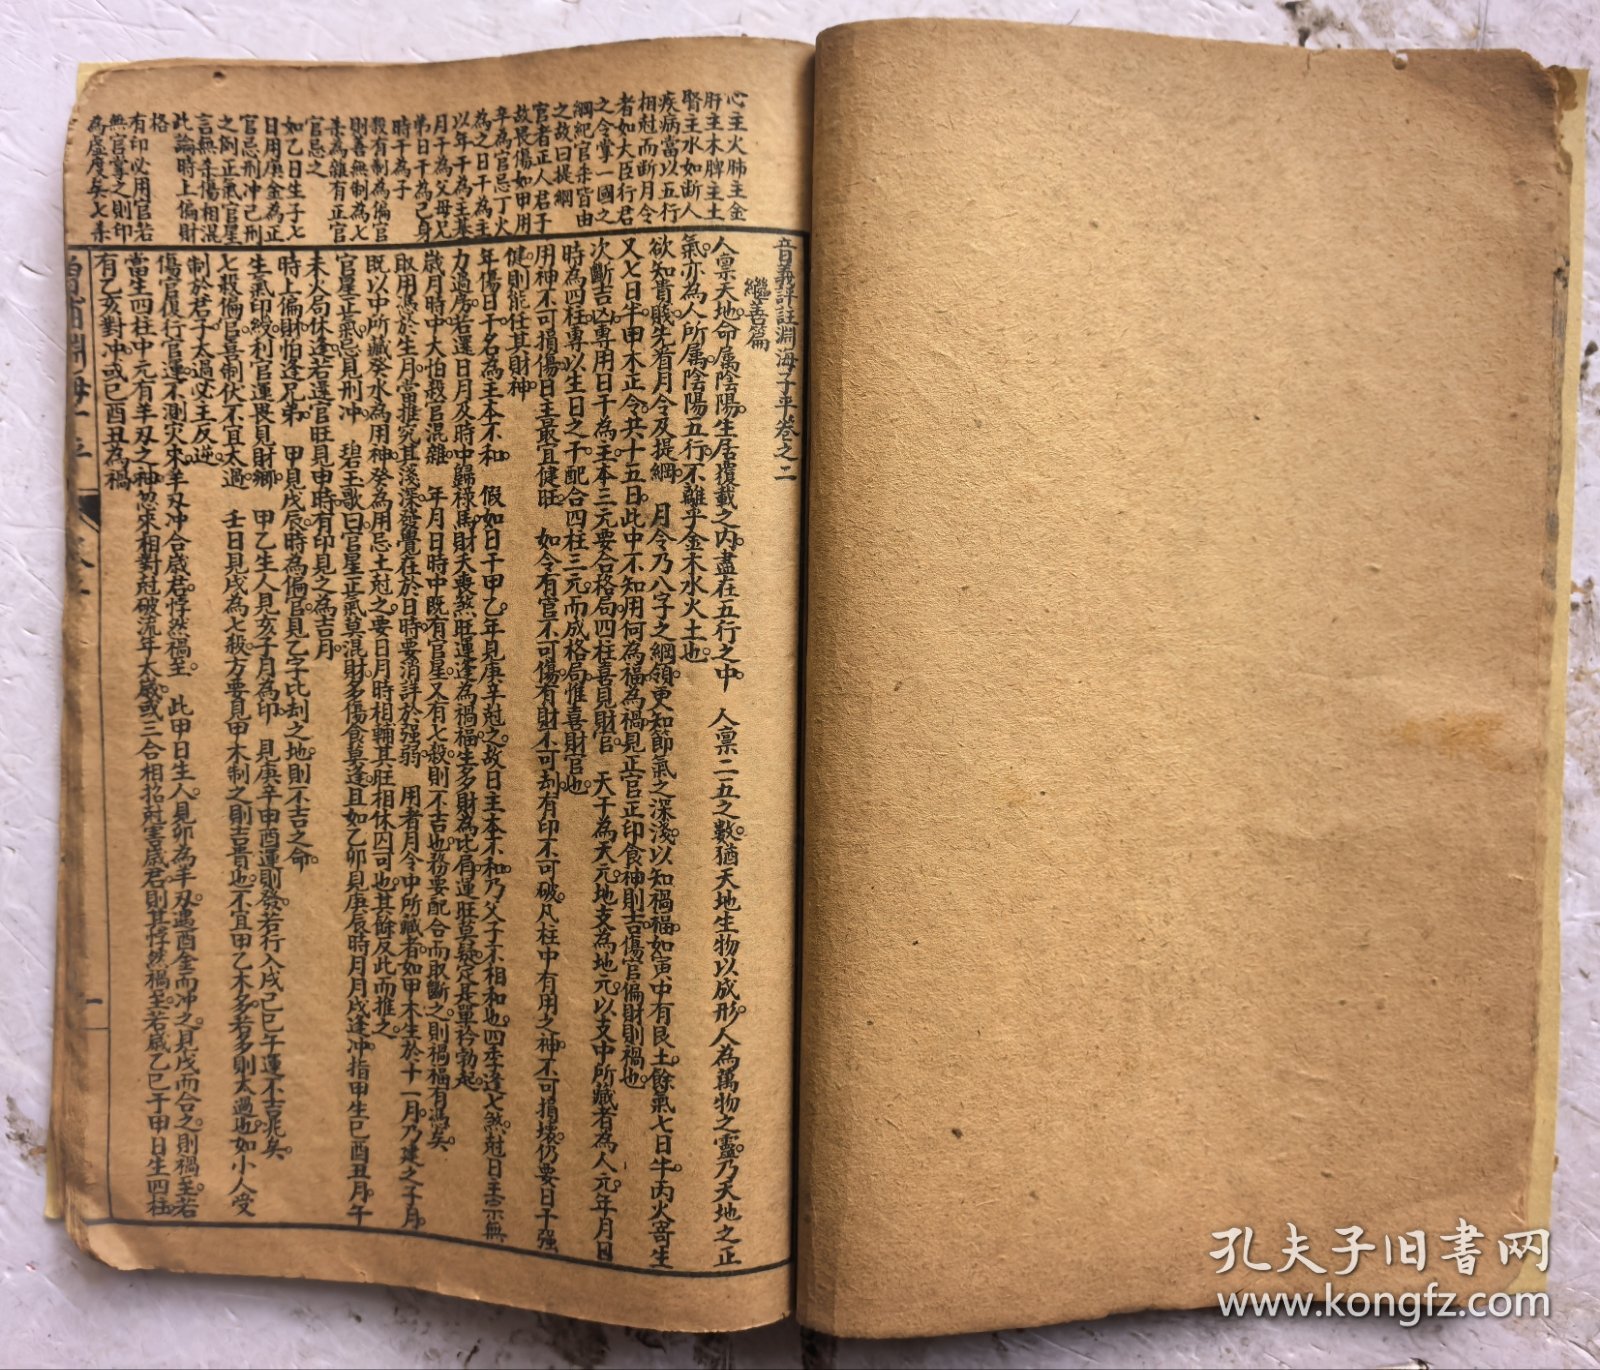 心主火肺主金
肝主木脾主土
腎主水如断人
疾病當以五行
相尅而断月令
者如大臣行君
之令掌一國之
綱紀官杀皆由
之故曰提綱
官者正人君子
故畏傷如甲用
辛為官忌丁火
為之日干為主
以年干為主基
月干為父母兄
弟日干為己身
時干為子
殺有制為偏官
則善無制為七
杀為雜有正官
官忌之
如乙日生子七
日用庚金為正
官忌刑冲己刑
之例正氣官星
言無杀傷相混
此論時上偏財
格
有印必用官若
無官掌之則印
為虛度矣七杀
音義評註淵海子平卷之二
繼善篇
人禀天地命属陰陽生居覆載之内盡在五行之中 人禀二五之數猶天地生物以成形人為萬物之靈乃天地之正
氣亦為人所属陰陽五行不離乎金木水火土也
欲知貴賤先看月令及提綱 月令乃八字之綱領更知節氣之深淺以知禍福如寅中有艮土餘氣七日半丙火寄生
又七日半甲木正令共十五日此中不知用何為福為禍見正官正印食神則吉傷官偏財則禍也
次斷吉凶專用日干為主本三元要合格局四柱喜見財官 天干為天元地支為地元以支中所藏者為人元年月日
時為四柱專以生日之干配合四柱三元而成格局惟喜財官也
用神不可損傷日主最宜健旺 如令有官不可傷有財不可刦有印不可破凡柱中有用之神不可損壞仍要日干强
健則能任其財神
年傷日干名為主本不和 假如日干甲乙年見庚辛尅之故曰主本不和乃父子不相和也四季逢七煞尅日主宗無
力過房若還日月及時中歸祿馬財天喪煞旺運逢為禍福生多財為比肩運旺莫疑定甚單衿勃起
歲月時中大怕殺官混雜 年月日時中既有官星又有七殺則不吉也務要配合而取斷之則禍福有馮矣
取用憑於生月當推究其淺深發覺在於日時要消詳於强弱 用者月令中所藏者如甲木生於十一月乃建之子月
既以中所藏癸水為用神癸為用忌土尅之要日月時相輔其旺相休囚可也其餘反此而推之
官星正氣忌見刑冲 碧玉歌曰官星正氣莫混財多傷食莫逢且如乙卯見庚辰時月月戌逢冲指甲生巳酉丑月午
未火局休逢若逢官旺見申時有印見之為吉月
時上偏財怕逢兄弟 甲見戊辰時為偏官見乙字比刦之地則不吉之命
生氣印綬利官運畏見財鄉 甲乙生人見亥子月為印 見庚辛申酉運則發若行入戌己巳午運不吉兆矣
七殺偏官喜制伏不宜太過 壬日見戊為七殺方要見甲木制之則吉貴也不宜甲乙木多若多則太過也如小人受
制於君子太過必主反逆
傷官復行官運不測灾來羊刃冲合歲君悖然禍至 此甲日生人見卯為羊刃遇酉金而冲之見戊而合之則禍至若
當生四柱中元有羊刃之神忽來相對尅破流年太歲或三合相招尅害歲君則其悖然禍至若歲乙巳于甲日生四柱
有乙亥對冲或巳酉丑為禍
一
孔夫子旧書网
www.kongfz.com